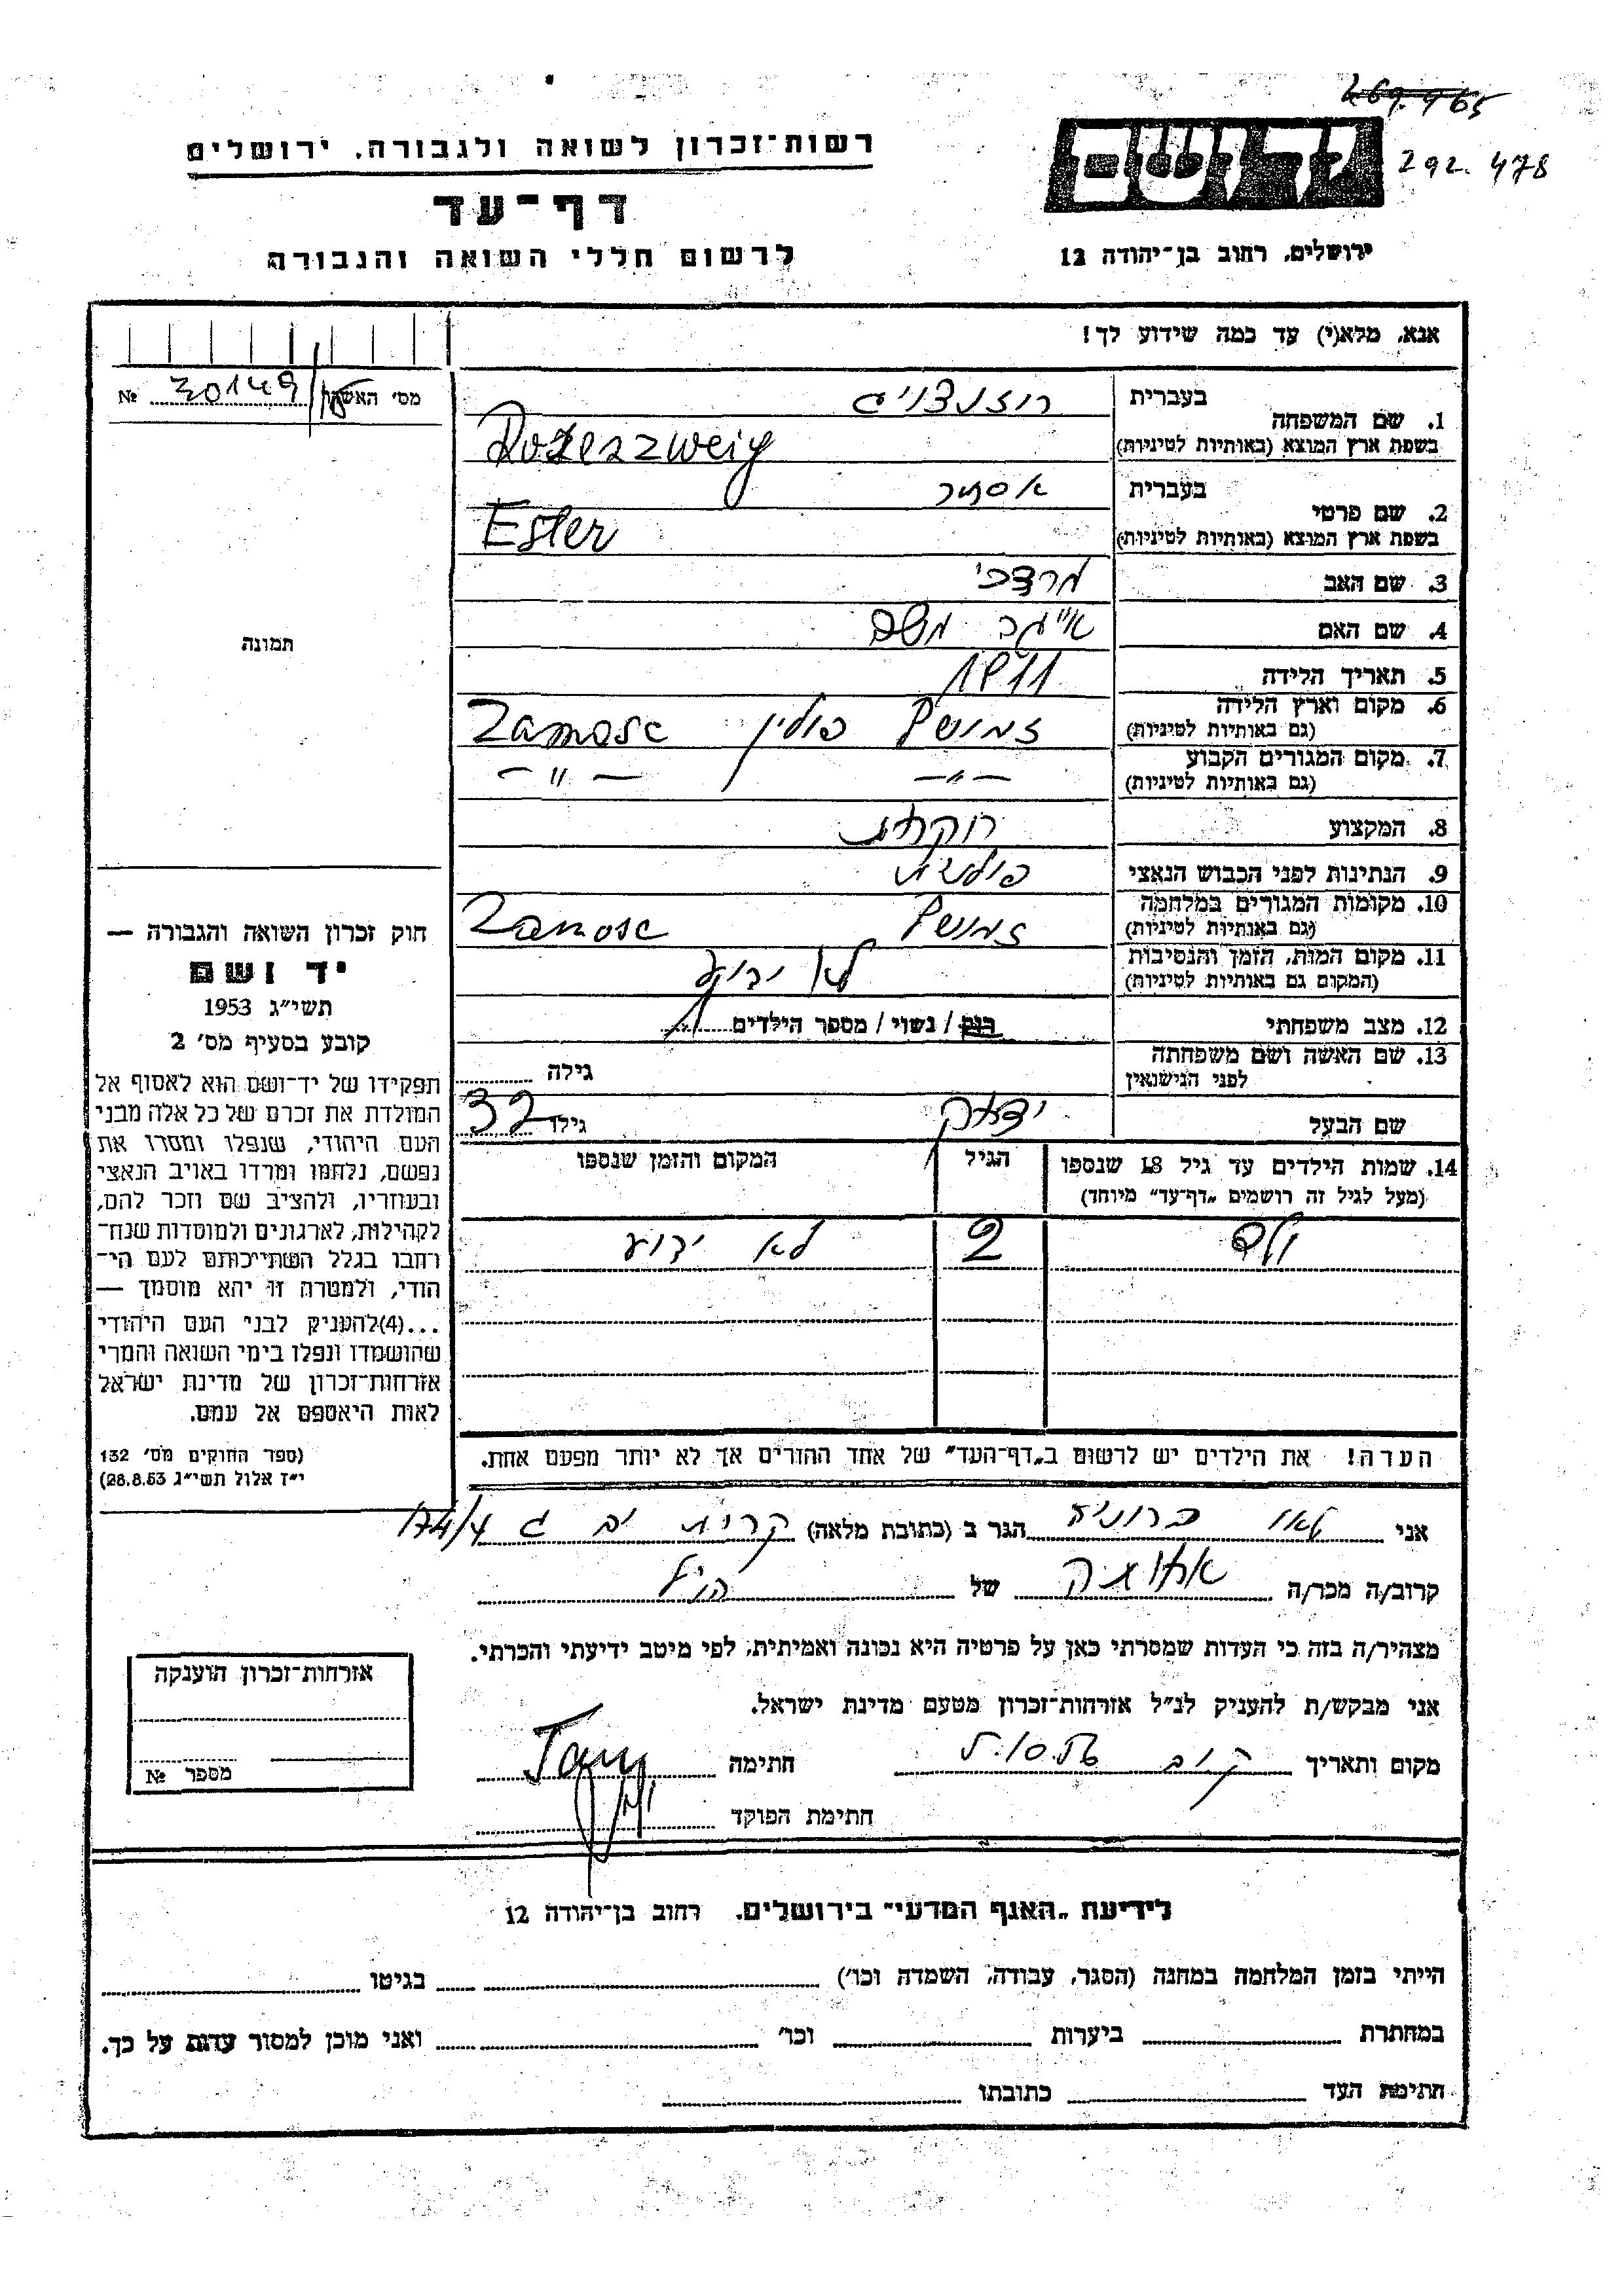 269.965
292.478
יד ושם
רשות־זכרון לשואה ולגבורה, ירושלים
דף־עד
לרשום חללי השואה והגבורה
ירושלים, רחוב בן־יהודה 12
אנא, מלא(י) עד כמה שידוע לך!
מס' האשה № 30149
1. שם המשפחה
בעברית רוזנצוייג
בשפת ארץ המוצא (באותיות לטיניות) Rozenzweig
2. שם פרטי
בעברית אסתר
בשפת ארץ המוצא (באותיות לטיניות) Ester
3. שם האב מרדכי
4. שם האם
5. תאריך הלידה 1911
6. מקום וארץ הלידה זמושץ פולין Zamosc
(גם באותיות לטיניות)
7. מקום המגורים הקבוע –"– –"–
(גם באותיות לטיניות)
8. המקצוע רוקחת
9. הנתינות לפני הכבוש הנאצי פולנית
10. מקומות המגורים במלחמה זמושץ Zamosc
(גם באותיות לטיניות)
11. מקום המות, הזמן והנסיבות לא ידוע
(המקום גם באותיות לטיניות)
12. מצב משפחתי רווק / נשוי / מספר הילדים 1
13. שם האשה ושם משפחתה גילה
לפני הנישואין
שם הבעל יצחק גילו 32
14. שמות הילדים עד גיל 18 שנספו הגיל המקום והזמן שנספו
(מעל לגיל זה רושמים „דף־עד" מיוחד)
ילד 2 לא ידוע
הערה! את הילדים יש לרשום ב„דף־העד" של אחד ההורים אך לא יותר מפעם אחת.
תמונה
חוק זכרון השואה והגבורה —
יד ושם
תשי"ג 1953
קובע בסעיף מס' 2
תפקידו של יד־ושם הוא לאסוף אל
המולדת את זכרם של כל אלה מבני
העם היהודי, שנפלו ומסרו את
נפשם, נלחמו ומרדו באויב הנאצי
ובעוזריו, ולהציב שם וזכר להם,
לקהילות, לארגונים ולמוסדות שנח־
רחבו בגלל השתייכותם לעם הי־
הודי, ולמטרה זו יהא מוסמך —
...(4)להעניק לבני העם היהודי
שהושמדו ונפלו בימי השואה והמרי
אזרחות־זכרון של מדינת ישראל
לאות היאספם אל עמם.
(ספר החוקים מס' 132
י"ז אלול תשי"ג 28.8.53)
אני ברוניה הגר ב (כתובת מלאה) קרית ים ג 174/4
קרוב/ה מכר/ה של הנ"ל
מצהיר/ה בזה כי העדות שמסרתי כאן על פרטיה היא נכונה ואמיתית, לפי מיטב ידיעתי והכרתי.
אני מבקש/ת להעניק לנ"ל אזרחות־זכרון מטעם מדינת ישראל.
מקום ותאריך חתימה
חתימת הפוקד
אזרחות־זכרון הוענקה
מספר №
לידיעת „האגף המדעי" בירושלים, רחוב בן־יהודה 12
הייתי בזמן המלחמה במחנה (הסגר, עבודה, השמדה וכו') בגיטו
במחתרת ביערות וכו' ואני מוכן למסור עדות על כך.
חתימת העד כתובתו